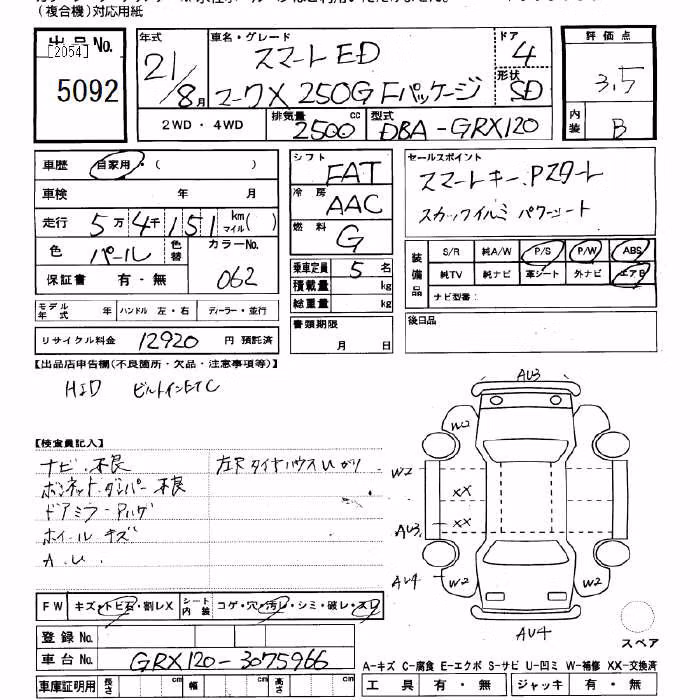 (複合機)対応用紙
出品No.
[2054]
5092
年式
21/8月
車名・グレード
スマートED
マークX 250G Fパッケージ
ドア
4
形状
SD
2WD・4WD
排気量
2500
cc
型式
DBA-GRX120
評価点
3.5
内装
B
車歴
自家用・( )
車検 年 月
走行
5万4千151
km
マイル( )
色
パール
色替
カラーNo.
062
保証書 有・無
モデル年式 年
ハンドル 左・右
ディーラー・並行
リサイクル料金
12920
円 預託済
シフト
FAT
冷房
AAC
燃料
G
乗車定員 5 名
積載量 kg
総重量 kg
書類期限
月 日
セールスポイント
スマートキー、Pスタート
パワーシート
装備品
S/R 純A/W P/S P/W ABS
純TV 純ナビ 革シート 外ナビ エアB
ナビ型番:
後日品
【出品店申告欄(不良箇所・欠品・注意事項等)】
HID ビルトインETC
【検査員記入】
ナビ.不良
ボンネット.ダンパー不良
ドアミラー
ホイール キズ
A.U.
AU3
W2
W2
XX
XX
AU3
AU4
W2
W2
AU4
スペア
FW
キズ・トビ石・割レX
シート内装
コゲ・穴・汚レ・シミ・破レ・スレ
登録No.
車台No.
GRX120-3075966
車庫証明用
長さ cm
幅 cm
高さ cm
A-キズ C-腐食 E-エクボ S-サビ U-凹ミ W-補修 XX-交換済
工具 有・無
ジャッキ 有・無